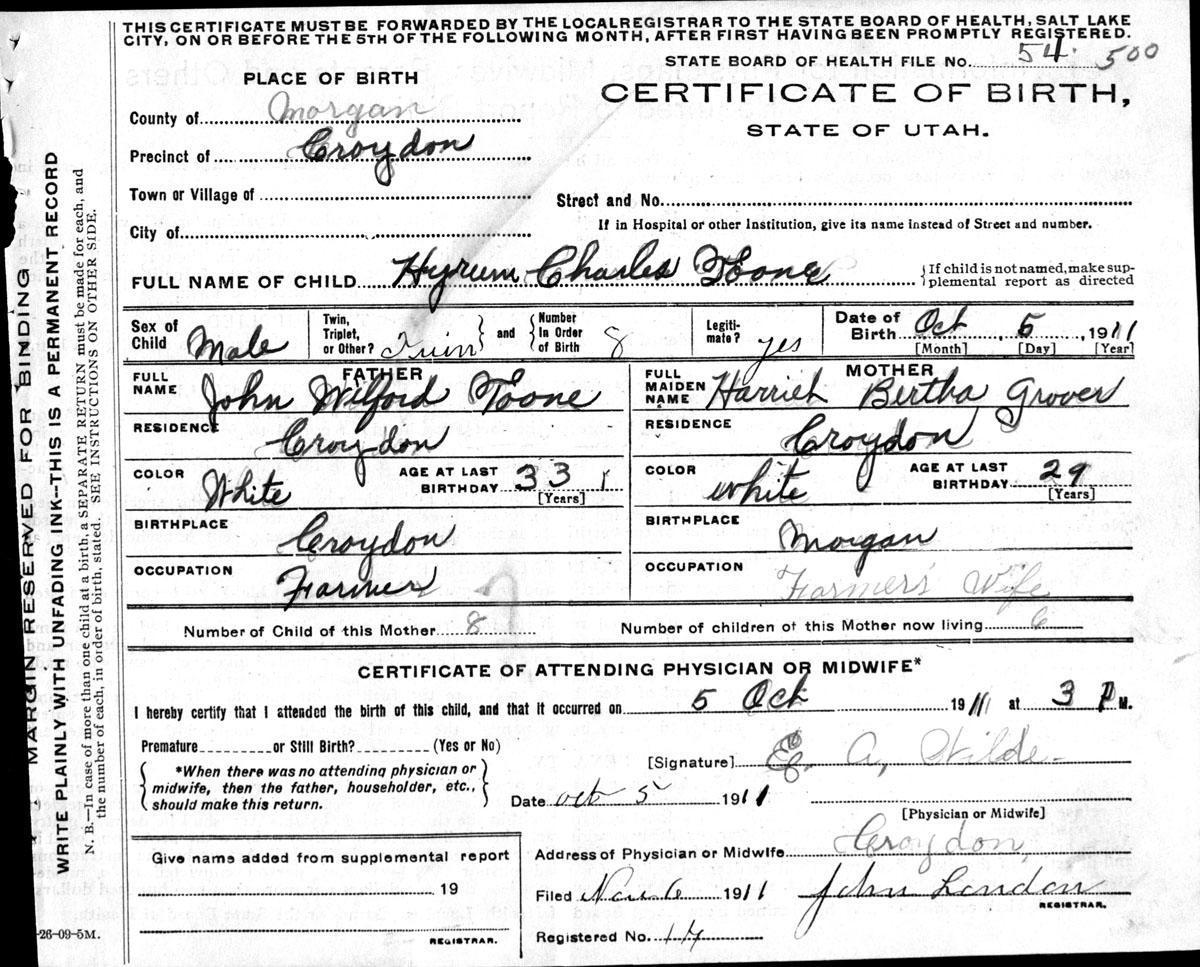 THIS CERTIFICATE MUST BE FORWARDED BY THE LOCAL REGISTRAR TO THE STATE BOARD OF HEALTH, SALT LAKE
CITY, ON OR BEFORE THE 5TH OF THE FOLLOWING MONTH, AFTER FIRST HAVING BEEN PROMPTLY REGISTERED.
STATE BOARD OF HEALTH FILE No. 54. 500
PLACE OF BIRTH
CERTIFICATE OF BIRTH,
STATE OF UTAH.
County of Morgan
Precinct of Croydon
Town or Village of
Street and No.
If in Hospital or other Institution, give its name instead of Street and number.
City of
FULL NAME OF CHILD Hyrum Charles Toone
{If child is not named, make sup-
plemental report as directed
Sex of Child Male
Twin, Triplet, or Other? Twin
and
Number In Order of Birth 8
Legiti- mate? yes
Date of Birth Oct 5, 1911
[Month] [Day] [Year]
FATHER
FULL NAME John Wilford Toone
RESIDENCE Croydon
COLOR White
AGE AT LAST BIRTHDAY 33
[Years]
BIRTHPLACE Croydon
OCCUPATION Farmer
MOTHER
FULL MAIDEN NAME Harriet Bertha Grover
RESIDENCE Croydon
COLOR White
AGE AT LAST BIRTHDAY 29
[Years]
BIRTHPLACE Morgan
OCCUPATION Farmer's Wife
Number of Child of this Mother 8
Number of children of this Mother now living 6
CERTIFICATE OF ATTENDING PHYSICIAN OR MIDWIFE*
I hereby certify that I attended the birth of this child, and that it occurred on 5 Oct 1911 at 3 P M.
Premature or Still Birth? (Yes or No)
[Signature] E. A. Wilde
{*When there was no attending physician or
midwife, then the father, householder, etc.,
should make this return.}
Date Oct 5 1911
[Physician or Midwife]
Address of Physician or Midwife Croydon
Give name added from supplemental report
19
REGISTRAR.
Filed Nov 6 1911 John London
REGISTRAR.
Registered No. 14
-26-09-5M.
MARGIN RESERVED FOR BINDING
WRITE PLAINLY WITH UNFADING INK--THIS IS A PERMANENT RECORD
N. B.—In case of more than one child at a birth, a SEPARATE RETURN must be made for each, and
the number of each, in order of birth, stated. SEE INSTRUCTIONS ON OTHER SIDE.